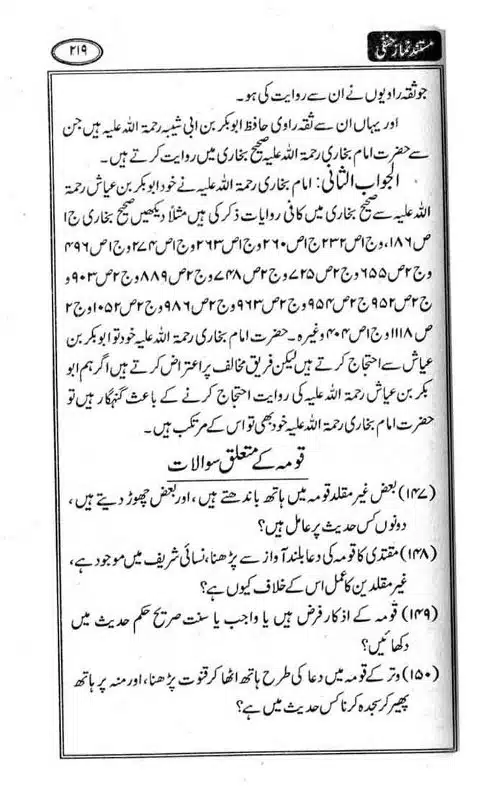 مستند نماز حنفی
۲۱۹
جو ثقہ راویوں نے ان سے روایت کی ہو۔
اور یہاں ان سے ثقہ راوی حافظ ابوبکر بن ابی شیبہ رحمۃ اللہ علیہ ہیں جن
سے حضرت امام بخاری رحمۃ اللہ علیہ صحیح بخاری میں روایت کرتے ہیں۔
الجواب الثانی: امام بخاری رحمۃ اللہ علیہ نے خود ابوبکر بن عیاش رحمۃ
اللہ علیہ سے صحیح بخاری میں کافی روایات ذکر کی ہیں مثلاً دیکھیں صحیح بخاری ج۱
ص۱۸۶، وج۱ص۲۳۲ ج۱ص۲۶۰ وج۱ص۲۶۳ وج۱ص۲۷۴ وج۱ص۴۹۶
وج۲ص۶۵۵ وج۲ص۷۲۵ وج۲ص۷۴۸ وج۲ص۸۸۹ وج۲ص۹۰۳ و
ج۲ص۹۵۲ وج۲ص۹۵۴ وج۲ص۹۶۳ وج۲ص۹۸۶ وج۲ص۱۰۵۲ وج۲
ص۱۱۱۸ وج۱ص۴۰۴ وغیرہ۔ حضرت امام بخاری رحمۃ اللہ علیہ خود تو ابوبکر بن
عیاش سے احتجاج کرتے ہیں لیکن فریق مخالف پر اعتراض کرتے ہیں اگر ہم ابو
بکر بن عیاش رحمۃ اللہ علیہ کی روایت احتجاج کرنے کے باعث گنہگار ہیں تو
حضرت امام بخاری رحمۃ اللہ علیہ خود بھی تو اس کے مرتکب ہیں۔
قومہ کے متعلق سوالات
(۱۴۷) بعض غیر مقلد قومہ میں ہاتھ باندھتے ہیں، اور بعض چھوڑ دیتے ہیں،
دونوں کس حدیث پر عامل ہیں؟
(۱۴۸) مقتدی کا قومہ کی دعا بلند آواز سے پڑھنا، نسائی شریف میں موجود ہے،
غیر مقلدین کا عمل اس کے خلاف کیوں ہے؟
(۱۴۹) قومہ کے اذکار فرض ہیں یا واجب یا سنت صریح حکم حدیث میں
دکھائیں؟
(۱۵۰) وتر کے قومہ میں دعا کی طرح ہاتھ اٹھا کر قنوت پڑھنا، اور منہ پر ہاتھ
پھیر کر سجدہ کرنا کس حدیث میں ہے؟